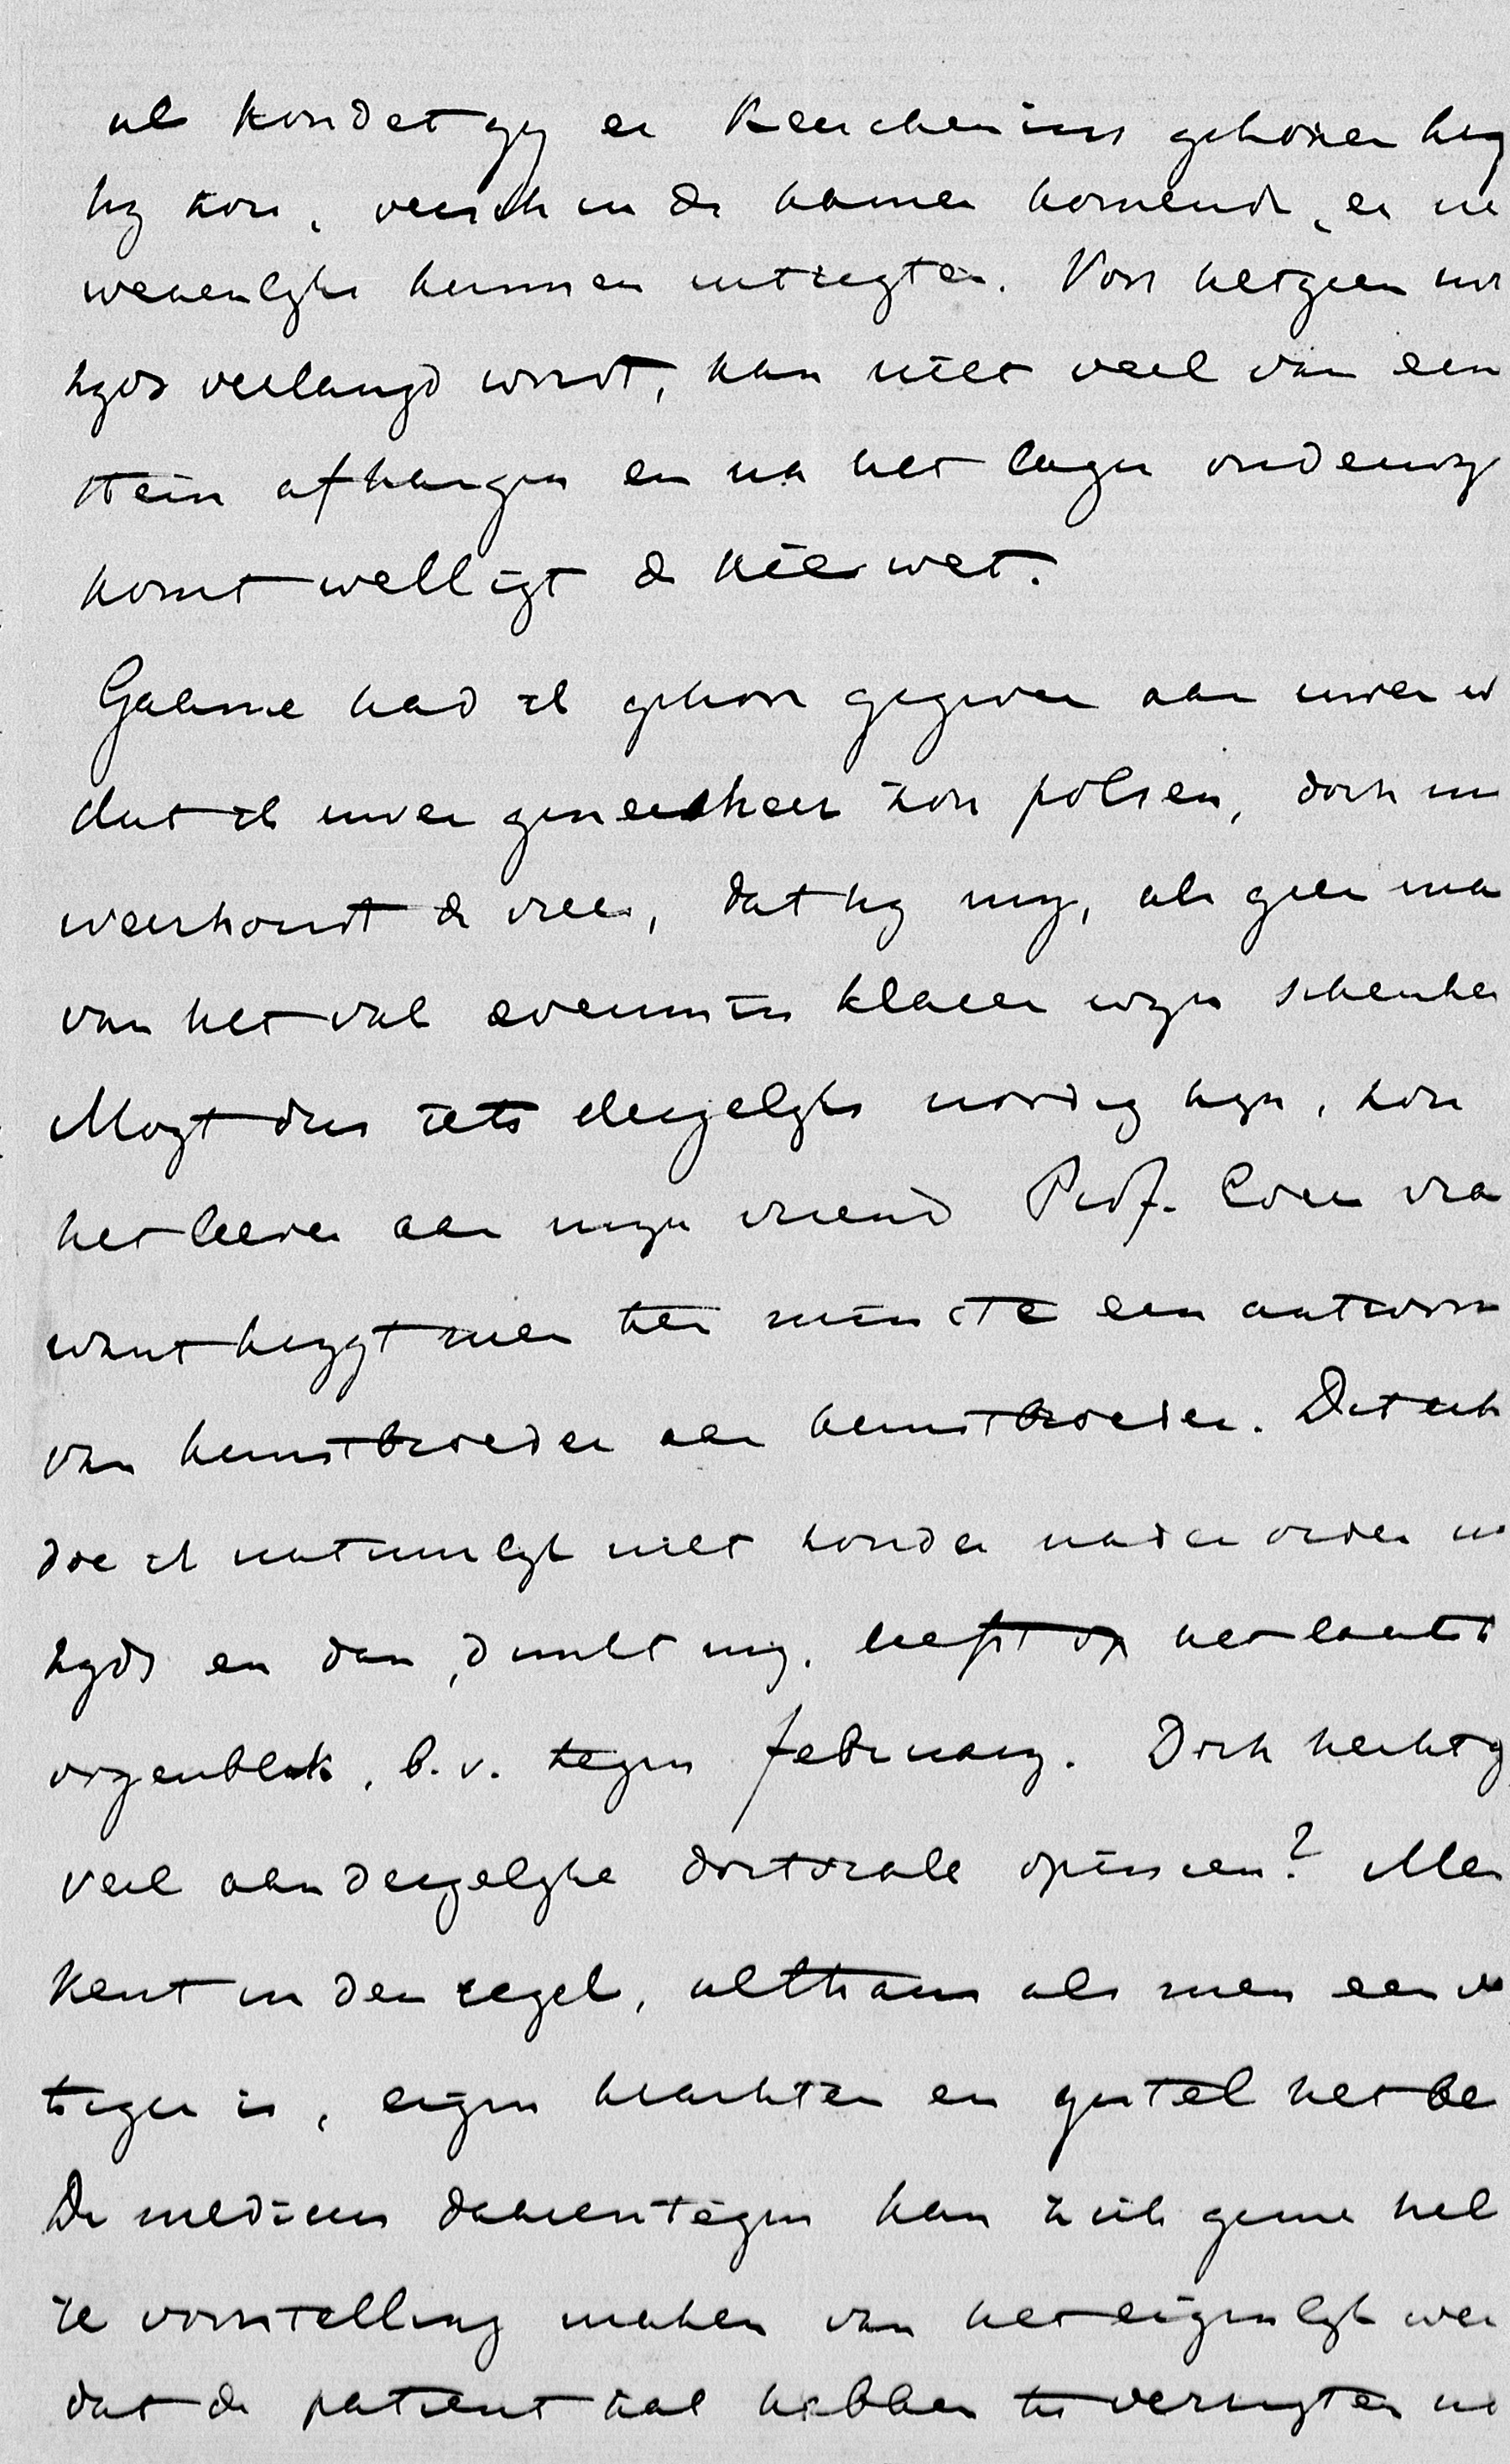 al kondet gij er Keuchenius gehoven krij
hij zou, versch in de kamer komende, er nie
wezenlijks kunnen uitrigten. Voor hetgeen on
zijds verlangd wordt, kan niet veel van een
stem afhangen en na het lager onderwijs
komt welligt de kieswet.
Gaarne had ik gehoor gegeven aan uwen w
dat ik uwen geneesheer zou polsen, doch m
weerhoudt de vrees, dat hij mij, als geen ma
van het vak evenmin klaren wijn schenken
Mogt dus iets dergelijks noodig zijn, zou
het liever aan mijn vriend Prof. Coen vra
want krijgt men ten minste een antwoor
van kunstbroeder aan kunstbroeder. Dat ech
doe ik natuurlijk niet zonder nader order u
zijds en dan, dunkt mij, liefst op het laats
oogenblik, b.v. tegen february. Doch hecht g
veel aan dergelijke doctorale opinien? Men
kent in den regel, althans als men een v
tiger is, eigen krachten en gestel het be
De medicus daarentegen kan zich geene hel
re voorstelling maken van het eigenlijk wer
dat de patient zal hebben te verrigten in